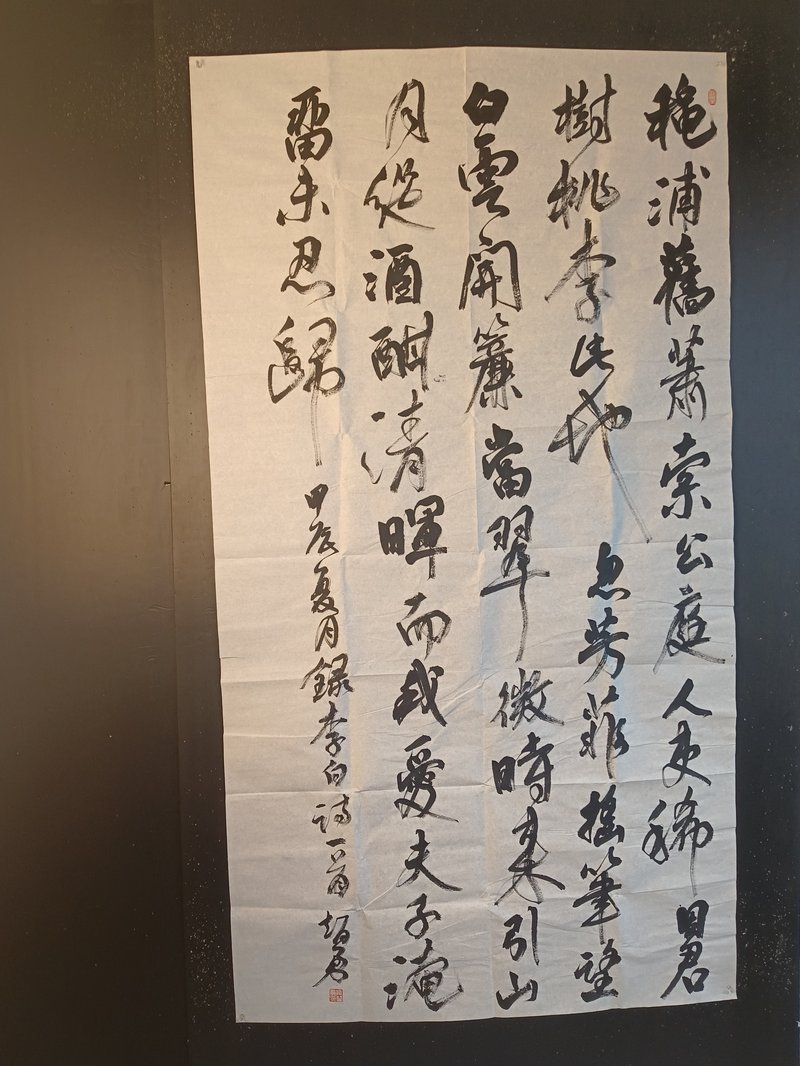 穐浦舊蕭索公庭人吏稀因君
樹桃李此地忽芳菲搖筆望
白雲開簾當翠微時來引山
月從酒酣清暉而我愛夫子淹
畱未忍歸
甲辰夏月錄李白詩一首